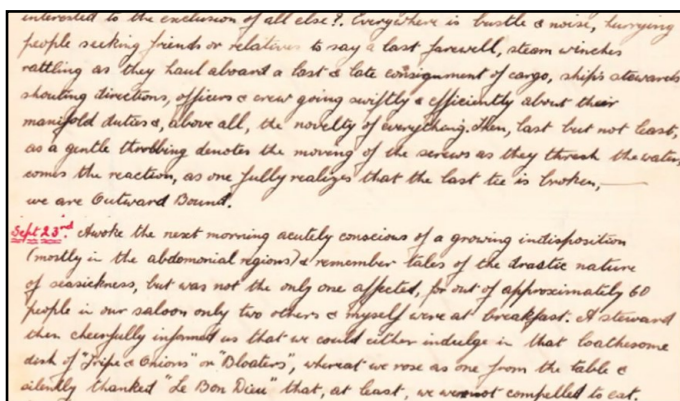 interested to the exclusion of all else?. Everywhere is bustle & noise, hurrying
people seeking friends or relatives to say a last farewell, steam winches
rattling as they haul aboard a last & late consignment of cargo, ship's stewards
shouting directions, officers & crew going swiftly & efficiently about their
manifold duties &, above all, the novelty of everything. Then, last but not least,
as a gentle throbbing denotes the moving of the screws as they thresh the water,
comes the reaction, as one fully realizes that the last tie is broken,—
we are Outward Bound.
Sept 23rd. Awoke the next morning acutely conscious of a growing indisposition
(mostly in the abdomonial regions) & remember tales of the drastic nature
of seasickness, but was not the only one affected, for out of approximately 60
people in our saloon only two others & myself were at breakfast. A steward
then cheerfully informed us that we could either indulge in that loathesome
dish of "Tripe & Onions" or "Bloaters", whereat we rose as one from the table &
silently thanked "Le Bon Dieu" that, at least, we were not compelled to eat.